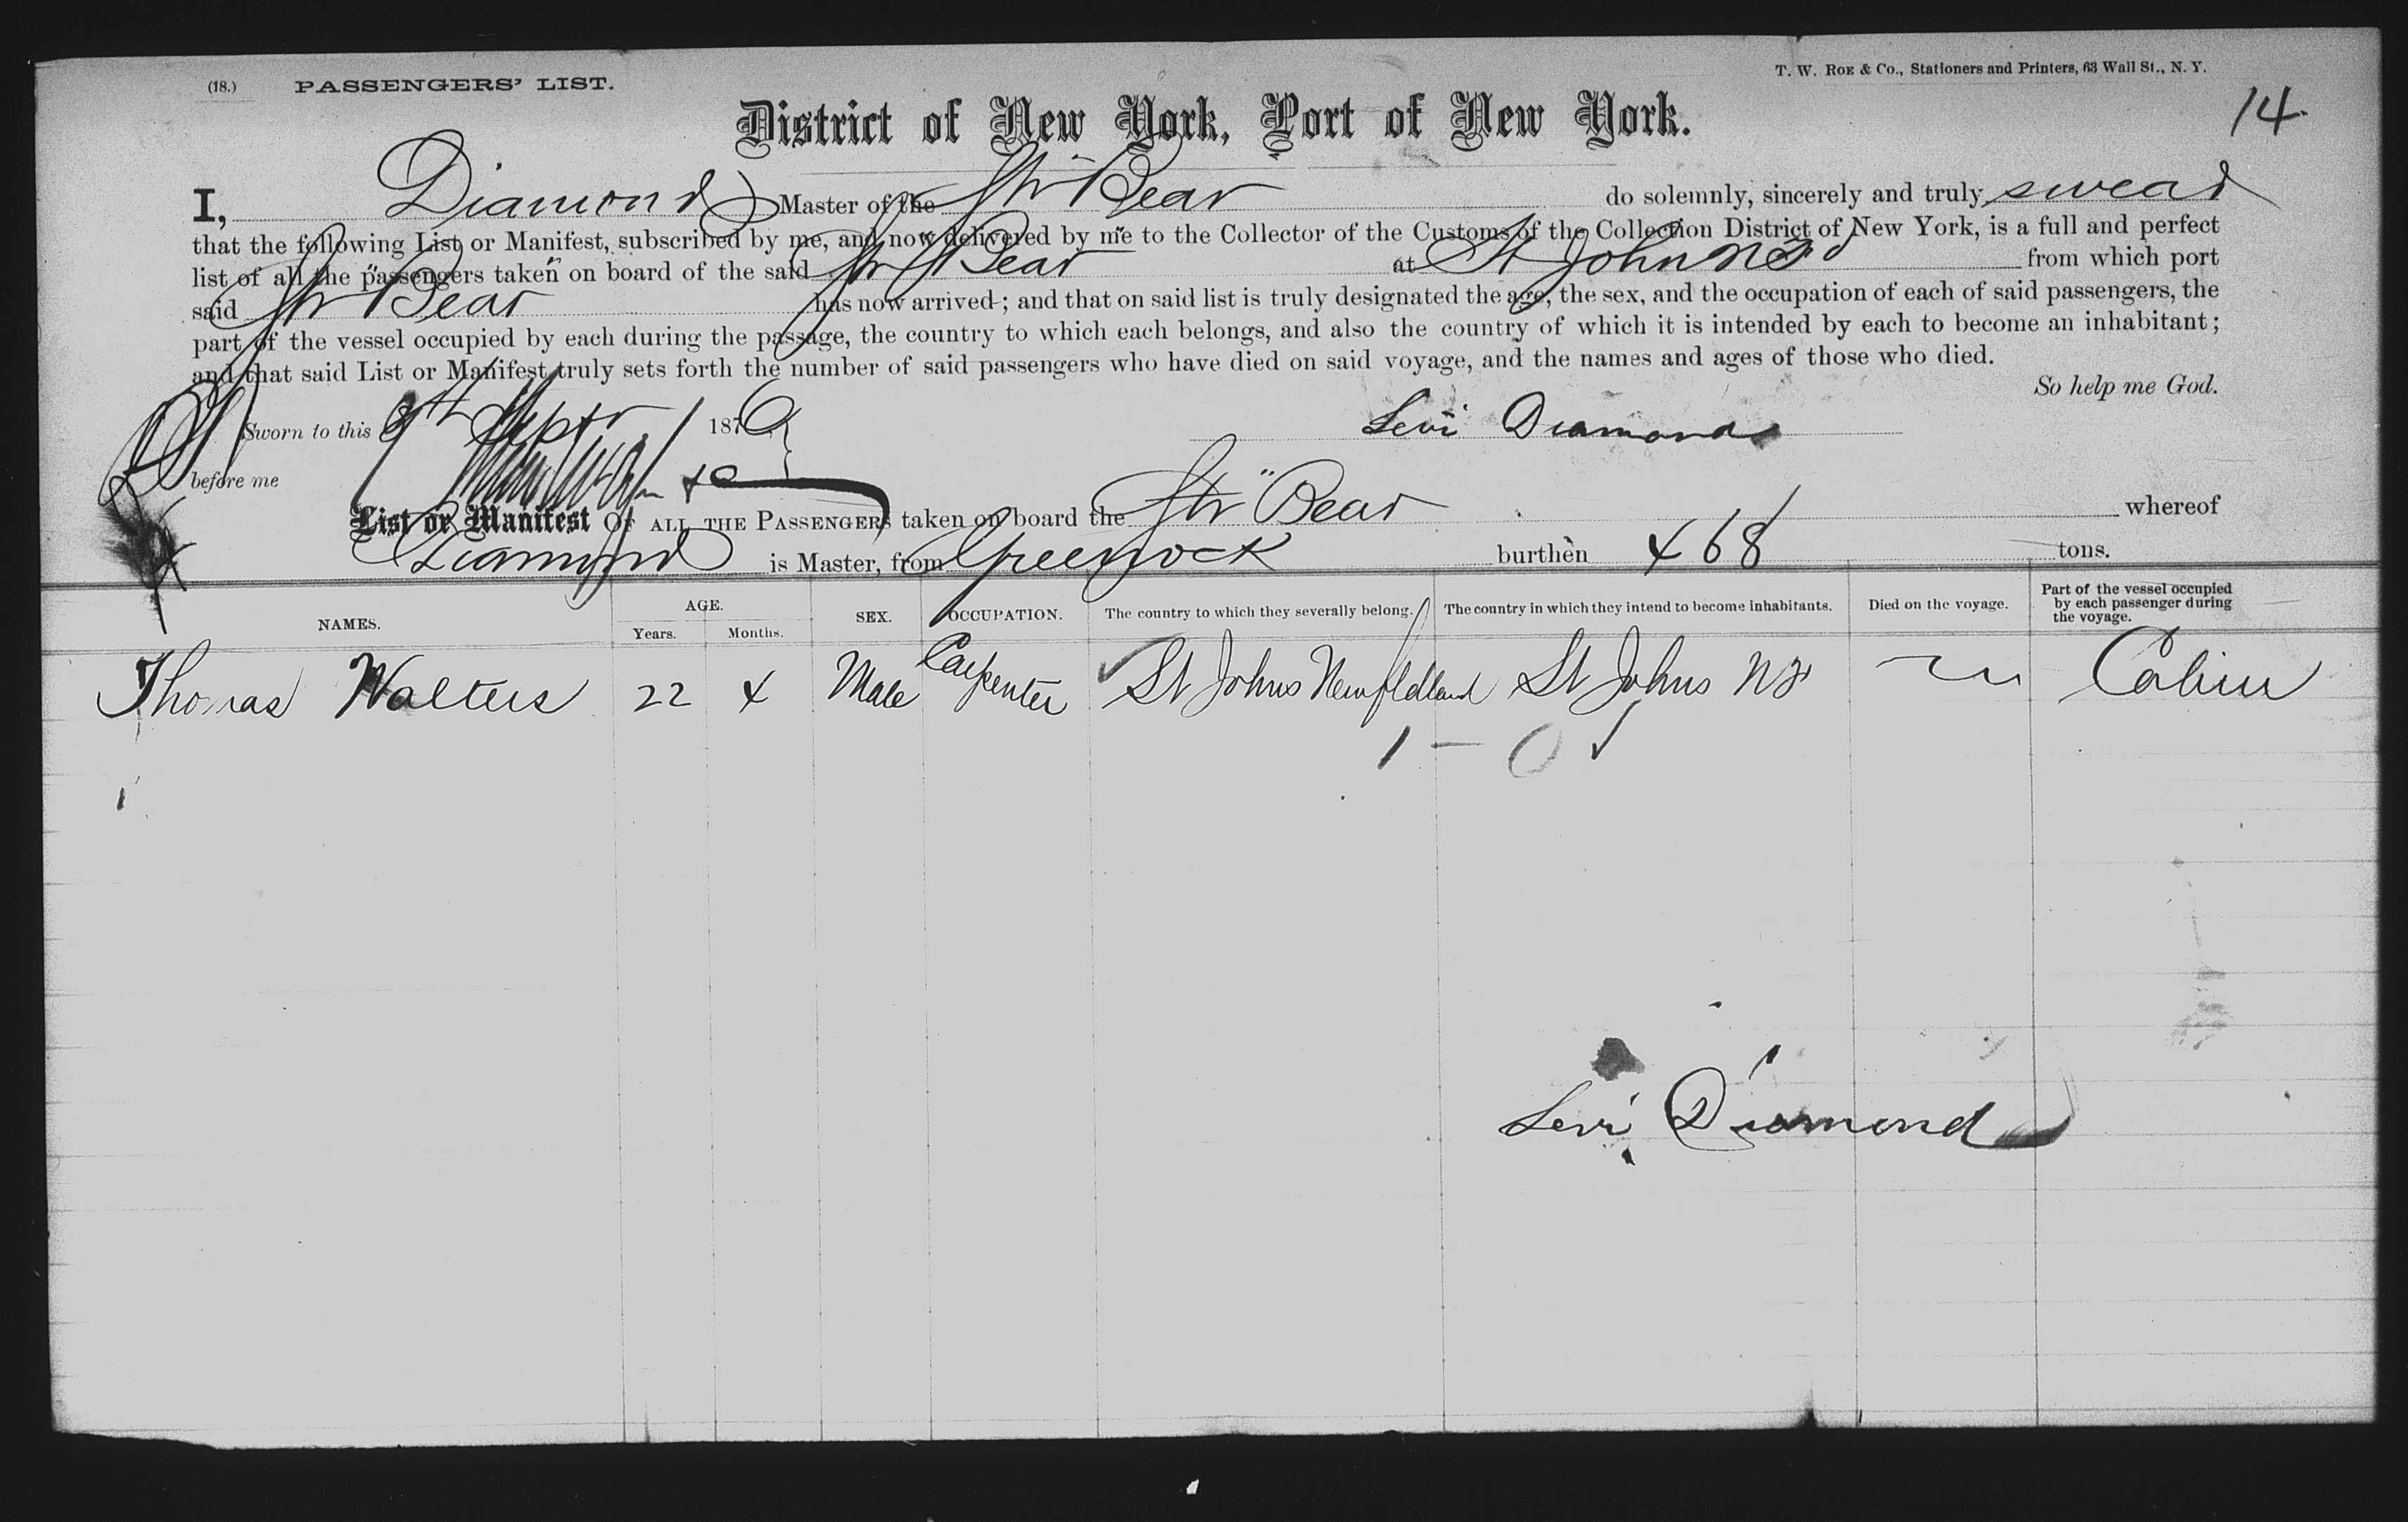 (18.) PASSENGERS' LIST. T. W. ROE & Co., Stationers and Printers, 63 Wall St., N. Y.
14
District of New York, Port of New York.
I, Diamond Master of the Str "Bear" do solemnly, sincerely and truly swear
that the following List or Manifest, subscribed by me, and now delivered by me to the Collector of the Customs of the Collection District of New York, is a full and perfect
list of all the passengers taken on board of the said Str Bear at St Johns NFd from which port
said Str "Bear" has now arrived; and that on said list is truly designated the age, the sex, and the occupation of each of said passengers, the
part of the vessel occupied by each during the passage, the country to which each belongs, and also the country of which it is intended by each to become an inhabitant;
and that said List or Manifest truly sets forth the number of said passengers who have died on said voyage, and the names and ages of those who died.
So help me God.
Sworn to this 9th Septr 1876 Levi Diamond
before me
List or Manifest OF ALL THE PASSENGERS taken on board the Str "Bear whereof
Diamond is Master, from Greenock burthen 468 tons.
NAMES. AGE. Years. Months. SEX. OCCUPATION. The country to which they severally belong. The country in which they intend to become inhabitants. Died on the voyage. Part of the vessel occupied by each passenger during the voyage.
Thomas Walters 22 4 Male Carpenter St Johns Newfldland St Johns NF Cabin
1 — 0 ✓
Levi Diamond